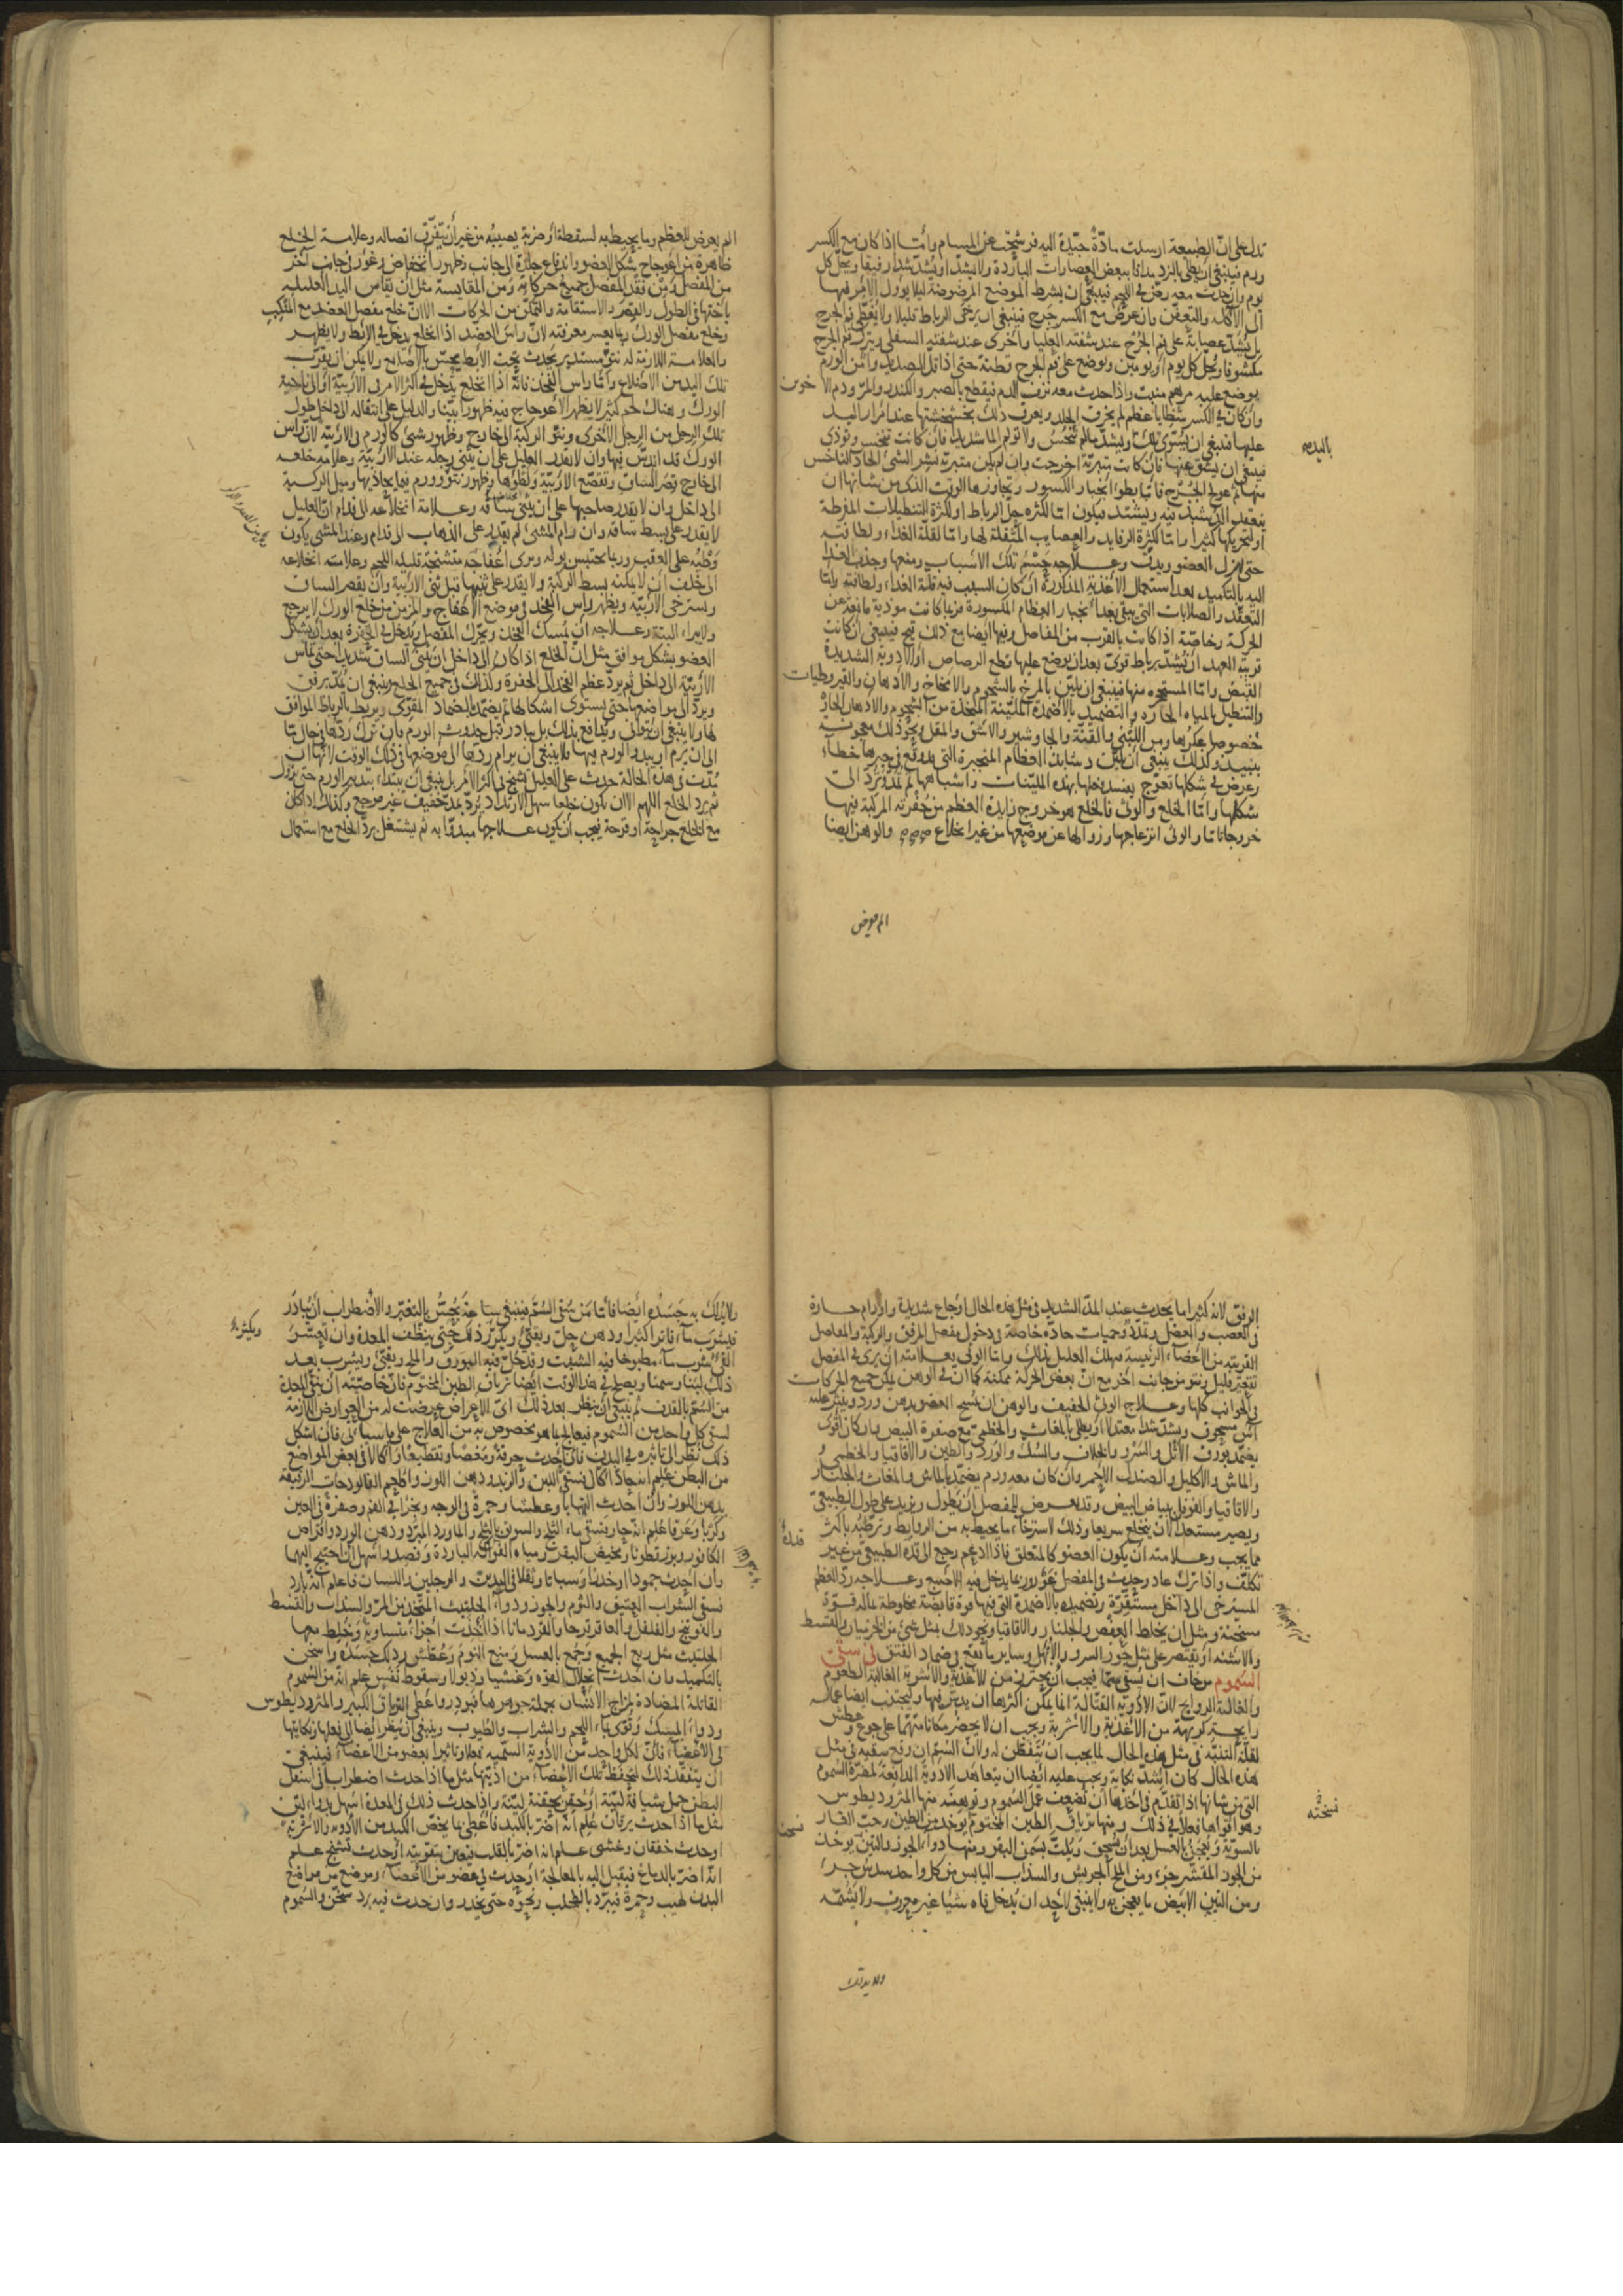 تدل على انّ الطبيعة ارسلت مادّة جيّدة اليه فرشحت عن المسام وأمّا إذا كان مع الكسر
ورم فينبغي أن يطلى بالبزد مدافا ببعض العصارات الباردة ولا يشدّ او يشدّ شدا رفيقا ويحلّ كل
يوم وإن حدث معه رضّ في اللحم فينبغي ان يشرط الموضع المرضوض لئلا يؤول الامر فيها
الى الآكلة والتعفّن وإن عرض مع الكسر جرح فينبغي ان يرخى الرباط قليلا ولا يغطّى فم الجرح
بل يشدّ عصابة على فم الجرح عند شفته العليا وأخرى عند شفته السفلى ويترك فم الجرح
مكشوفا ويحلّ كل يوم او يومين ويوضع على فم الجرح قطنة حتى اذا قل الصديد وأمن الورم
يوضع عليه مرهم منبت وإذا حدث معه نزف الدم فيقطع بالصبر والكندر والمرّ ودم الاخوين
وان كان في الكسر شظايا عظم لم يخرق الجلد ويعرف ذلك بخشخشتها عند امرار اليد
عليها فينبغي ان يسوّى تلك ويشدّ مالم تنخس ولا تولم الما شديدا فإن كانت تنخس وتوذي
فينبغي ان يشق عنها فان كانت متبرئة اخرجت وإن لم يكن متبرئة نشر الشئ الحاد الناخس
منها ثم عولج الجرح فامّا بطوء انجبار الكسور وتجاوزها الوقت الذي من شانها ان
ينعقد الدشبد فيه ويشتد فيكون امّا لكثرة حلّ الرباط او لكثرة التنطيلات المفرطة
او لتحريكها كثيرا وامّا لكثرة الرفايد والعصايب المثقلة لها وامّا لقلة الغذاء ولطافته
حتى يهزل العضو ويدقّ وعلاجه حسم تلك الأسباب ومنعها وجذب الغذا
اليه بالتكميد بعد استعمال الأغذية المذكورة ان كان السبب فيه قلة الغذاء ولطافته وامّا
التعقّد والصلابات التي يبقى بعد انجبار العظام المكسورة فربّما كانت موذية مانعة عن
الحركة وخاصّة اذا كانت بالقرب من المفاصل وفيها ايضا مع ذلك قبح فينبغي ان كانت
قريبة العهد ان يشدّ برباط قويّ بعد ان يوضع عليها قطع الرصاص او الادوية الشديدة
القبض وامّا المستحجرة منها فينبغي ان يليّن بالمرخ بالشحوم والامخاخ والادهان والقيروطيات
والتنطيل بالمياه الحارة والتضميد بالأضمدة المليّنة المتخذة من الشحوم والادهان الحارّة
خصوصا عكرها ومن اللبنى والقنّة والجاوشير والاشق والمقل ونحو ذلك معجونة
بنبيذ وكذلك ينبغي ان يليّن دشابذ العظام المنجبرة التي قد وقع في جبرها خطاء
وعرض في شكلها تعوّج يفسد فعلها بهذه المليّنات واشباهها ثم تمدّ وتردّ الى
شكلها وامّا الخلع والوثى فالخلع هو خروج زايدة العظم من حفرته المركبة فيها
خروجا تامّا والوثى انزعاجها وزوالها عن موضعها من غير انخلاع والوهن ايضا
الم يعرض
الم يعرض للعظم وما يحيط به لسقطة او ضربة يصيبه من غير أن يتفرّق اتصاله وعلامة الخلع
ظاهرة من اعوجاج شكل العضو واندفاع جلده الى جانب وظهور انخفاض وغور في جانب آخر
من المفصل ومن فقد المفصل جميع حركاته ومن المقايسة مثل ان يقاس اليد العليلة
باختها في الطول والقصر والاستقامة والتمكّن من الحركات الا ان خلع مفصل العضد مع المنكب
وخلع مفصل الورك ربما يعسر معرفته لانّ راس العضد اذا انخلع يدخل في الابط ولا يظهر
والعلامة اللازمة له نتوّ مستدير يحدث تحت الابط يجسّ بالاصابع ولا يمكن ان يقرّب
تلك اليد من الاضلاع وامّا راس الفخذ فانّه اذا انخلع يدخل في اكثر الامر في الاربيّة او الى ناحية
الورك وهناك لحم كثير لا يظهر الاعوجاج فيه ظهورا بيّنا والدليل على انتقاله الى داخل طول
تلك الرجل من الرجل الأخرى ونتوّ الركبة الى خارج وظهور شئ كالورم في الاربيّة لان راس
الورك قد اندسّ فيها وان لا يقدر العليل على ان يثنى رجله عند الاربيّة وعلامة خلعه
الى خارج قصر الساق وتقصّع الاربيّة وظهور نتوّ وورم فيما يحاذيها وميل الركبة
الى داخل وان لا يقدر صاحبها على ان يثنى ساقه وعلامة انخلاعه الى قدام انّ العليل
لا يقدر على بسط ساقه وان رام المشى لم يقدر على الذهاب الى قدام وعند المشى يكون
وطئه على العقب وربما يحتبس بوله ويرى اعفاجه متشنجة قليلة اللحم وعلامة انخلاعه
الى خلف ان لا يمكنه بسط الركبة ولا يقدر على ثنيها قبل ثنى الاربية وان يقصر الساق
ويسترخى الأربيّة ويظهر راس الفخذ في موضع الاعفاج والمزمن من خلع الورك لا يرجع
ولا يبراء البتة وعلاجه ان يمسك الفخذ ويحرّك المفصل ويدخل في الحفرة بعد ان يشكّل
العضو بشكل موافق مثل انّ الخلع اذا كان الى داخل ان يثنى الساق شديدا حتى يماس
الاربيّة الى داخل ثم يردّ عظم الفخذ الى الحفرة وكذلك في جميع الخلع وينبغي ان يمدّ برفق
ويردّ الى مواضعها حتى يستوى اشكالها ثم يضمّد بالضماد المقوّى ويربط بالرباط الموافق
لها ولا ينبغي ان يتوانى ويدافع بذلك بل يبادر قبل حدوث الورم فان ترك ردّها في حال ما
الى ان يرم او يبدو الورم فيها فلا ينبغي ان يرام ردّها الى موضعها في ذلك الوقت لانها ان
مدّت في هذه الحالة حدث على العليل تشنج في اكثر الامر بل ينبغي ان يبتداء بتدبير الورم حتى يزول
ثم يرد الخلع اللهم الا ان يكون خلعا سهل الارتداد يردّ بمدّ خفيف غير موجع وكذلك اذا كان
مع الخلع جراحة او قرحة فيجب ان يكون علاجها مبدوّا به ثم يشتغل بردّ الخلع مع استعمال
الرفق لانه كثيرا ما يحدث عند المدّ الشديد في مثل هذه الحال اوجاع شديدة واورام حارة
في العصب والعضل وتمدّد وحميات حادّة خاصة في دخول مفصل المرفق والركبة والمفاصل
القريبة من الأعضاء الرئيسة فيهلك العليل بذلك وامّا الوثى فعلامته ان يرى في المفصل
تقعير قليل ونتو من جانب اخر مع انّ بعض الحركة ممكنة كما انّ في الوهن يمكن جميع الحركات
والجوانب كلها وعلاج الوثى الخفيف والوهن ان يمسح العضو بدهن ورد وينثر عليه
آس مسحوق ويشدّ شدا معتدلا او يطلى بالمغاث والخطمى مع صفرة البيض وان كان أقوى
يضمّد بورق الاثل والسرو والخلاف والسك والورد والطين والاقاقيا والخطمى
والماش والاكليل والصندل الاحمر وان كان معه ورم يضمّد بالماش والمغاث والجلنار
والاقاقيا والفوفل ببياض البيض وقد يعرض للمفصل ان يطول ويزيد على طوله الطبيعىّ
ويصير مستعدا لان ينخلع سريعا وذلك لاسترخاء ما يحيط به من الروابط وترطّبه باكثر
مما يجب وعلامته ان يكون العضو كالمتعلق فاذا ادعم رجع الى قدّه الطبيعى من غير
تكلّف واذا ترك عاد وحدث في المفصل غؤور ربما يدخل فيه الاصبع وعلاجه ردّ العظم
المسترخى الى داخل مستقرّه وتضميده بالاضمدة التي فيها قوة قابضة مخلوطة بماله قوّة
مسخنة ومثل ان يخلط العفص والجلنار والاقاقيا ونحو ذلك بمثل شئ من الجندبيدستر والقسط
والاشنه او يقتصر على مثل جوز السرو والابهل وساير ما يقع في ضماد الفتق في سقى
السموم من خاف ان يسقى سمّا فيجب ان يحترز من الاغذية والاشربة الغالبة الطعوم
والغالبة الروايح لانّ الادوية القتّالة انما يمكن اكثرها ان يدسّ فيها وليجتنب ايضا عما له
رايحة كريهة من الاغذية والاشربة ويجب ان لا يحضر مكانا متهما على جوع وعطش
لقلة التنبّه في مثل هذه الحال لما يجب ان يتفطّن له ولانّ السّم ان وقع سقيه في مثل
هذه الحال كان اشدّ نكاية ويجب عليه ايضا ان يتعاهد الادوية الدافعة لمضرّة السّموم
التي من شانها اذا تقدّم في اخذها ان تضعف عمل السّموم وتوهنه منها المثروديطوس
وهو اقواها فعلا في ذلك ومنها ترياق الطين المختوم يوخذ من الطين وحبّ الغار
بالسويّة ويعجن بالعسل بعد ان يسحق ويلتّ بسمن البقر ومنها دواء الجوز والتين يوخذ
من الجوز المقشّر جزء ومن الملح الجريش والسذاب اليابس من كل واحد سدس جزء
ومن التين الابيض ما يعجن به ولا ينبغي لاحد ان يدخل فاه شيئا غير معروف ولا يشمّه
ولا يدلك
ولا يدلك به جسده ايضا فامّا من سقى السّم فينبغي ساعة يحسّ بالتغيّر والاضطراب أن يبادر
فيشرب ماء فاترا كثيرا ودهن حلّ ويتقيّئ ويكرّر ذلك حتى ينظّف المعدة وان تعسّر
القى يشرب ماء مطبوخا فيه الشبت وقد حلّ فيه البورق والملح ويقىّ ويشرب بعد
ذلك لبنا وسمنا ويصلح في هذا الوقت ايضا ترياق الطين المختوم فانّ خاصيّته ان ينقى المعدة
من السّم بالقذف ثم ينبغي ان ينظر بعد ذلك اىّ الاعراض عرضت له من العوارض اللازمة
لسقى كل واحد من السّموم فيعالج بما هو مخصوص به من العلاج على ما سياتى فان اشكل
ذلك نظر الى تاثيره في البدن فان احدث حرقة ومغصا وتقطيعا واكالا في بعض المواضع
من البطن علم انه حادّ اكّال فيسقى اللبن والزبد ودهن اللوز واطعم الفالوذجات الرقيقة
بدهن اللوز وان احدث التهابا وعطشا وحمرة في الوجه وبخرا في الفم وصفرة في العين
وكربا وعرقا علم انه حار يسقى ماء الثلج والسويق بالثلج والماورد المبرّد ودهن الورد واقراص
الكافور وبزر قطونا ومخيض البقر ومياه الفواكه الباردة وفصد واسهل ان احتيج اليهما
وان احدث جمودا او خدرا وسباتا وثقلا في اليدين والرجلين واللسان فاعلم انه بارد
فسقى الشراب العتيق والثوم والجوز ودواء الحلتيت المتخذ من المرّ والسذاب والقسط
والفوتنج والفلفل والعاقرقرحا والقردمانا اذا اخذت اجزاء متساوية وخلط معها
الحلتيت مثل ربع الجميع وجمع بالعسل ومنع النوم وعطّس ودلك جسده واسخن
بالتكميد وان احدث انحلال القوة وغشيا وذبولا وسقوط نفس علم انه من السّموم
القاتلة المضادة لمزاج الانسان بجملة جوهرها فبودر واعطى الترياق الكبير والمثروديطوس
ودواء المسك وقوّى بماء اللحم والشراب والطيوب وينبغي ان ينظر ايضا الى فعلها ونكايتها
في الاعضاء فانّ لكل واحد من الادوية السّمية فعلا وتاثيرا بعضو من الاعضاء فينبغي
ان يتفقّد ذلك ليحفظ تلك الاعضاء من اذيّتها مثل ما اذا حدث اضطراب في اسفل
البطن حمل شيافة ليّنة او حقن بحقنة ليّنة واذا حدث ذلك في المعدة اسهل بدواء ليّن
مثل ما اذا حدث يرقان علم انه اضرّ بالكبد فاعطى ما يخصّ الكبد من الادوية والاشربة
او حدث خفقان وغشى علم انه اضرّ بالقلب فيعنى بتقويته او حدث تشنج علم
انه اضرّ بالدماغ فيقبل اليه بالمعالجة او حدث في عضو من الاعضاء وموضع من مواضع
البدن لهيب وحمرة فيبرّد بالطحلب ونحوه حتى يخدر وان حدث فيه برد سخّن والسّموم